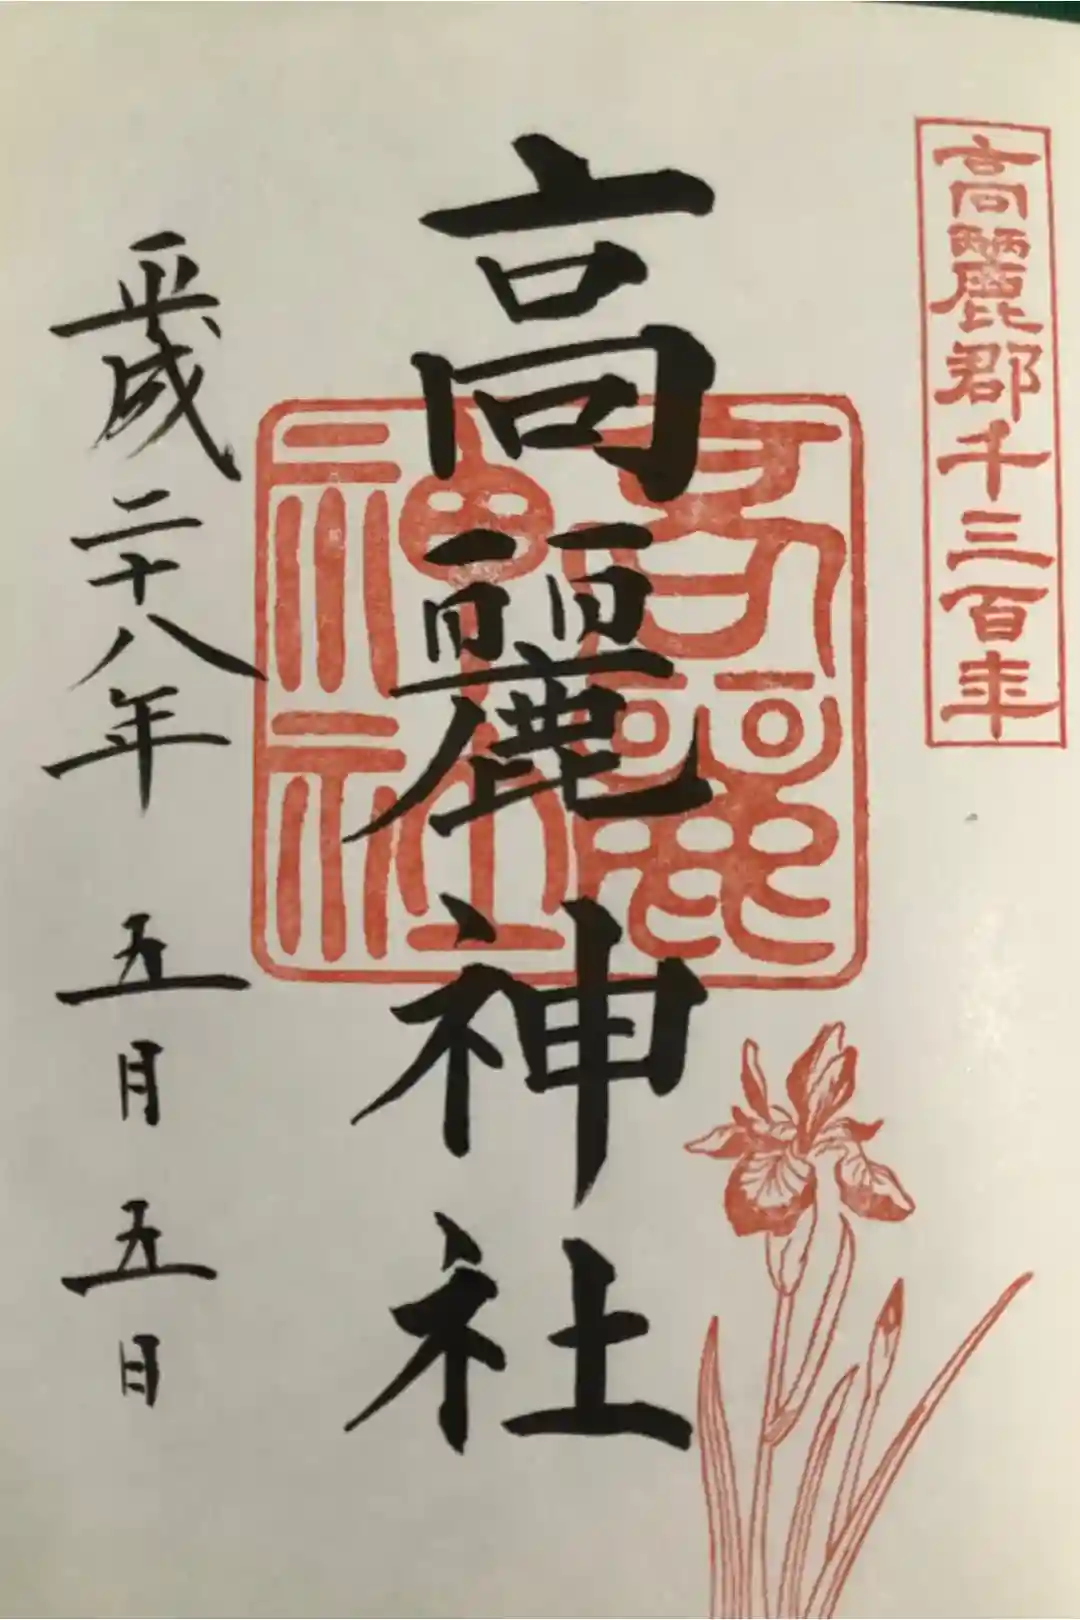 高麗郡千三百年
高麗神社
高麗神社
平成二十八年 五月 五日